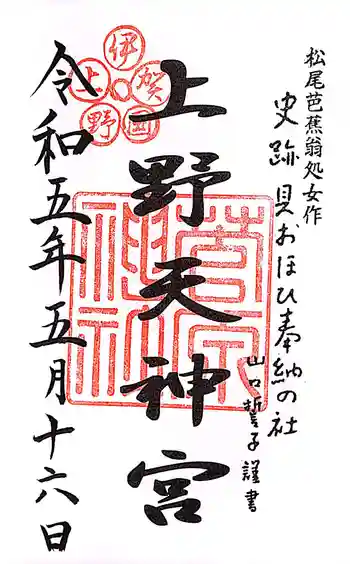 松尾芭蕉翁処女作
史跡貝おほひ奉納の社
山口誓子謹書
上野天神宮
伊賀国上野
菅公神社
令和五年五月十六日